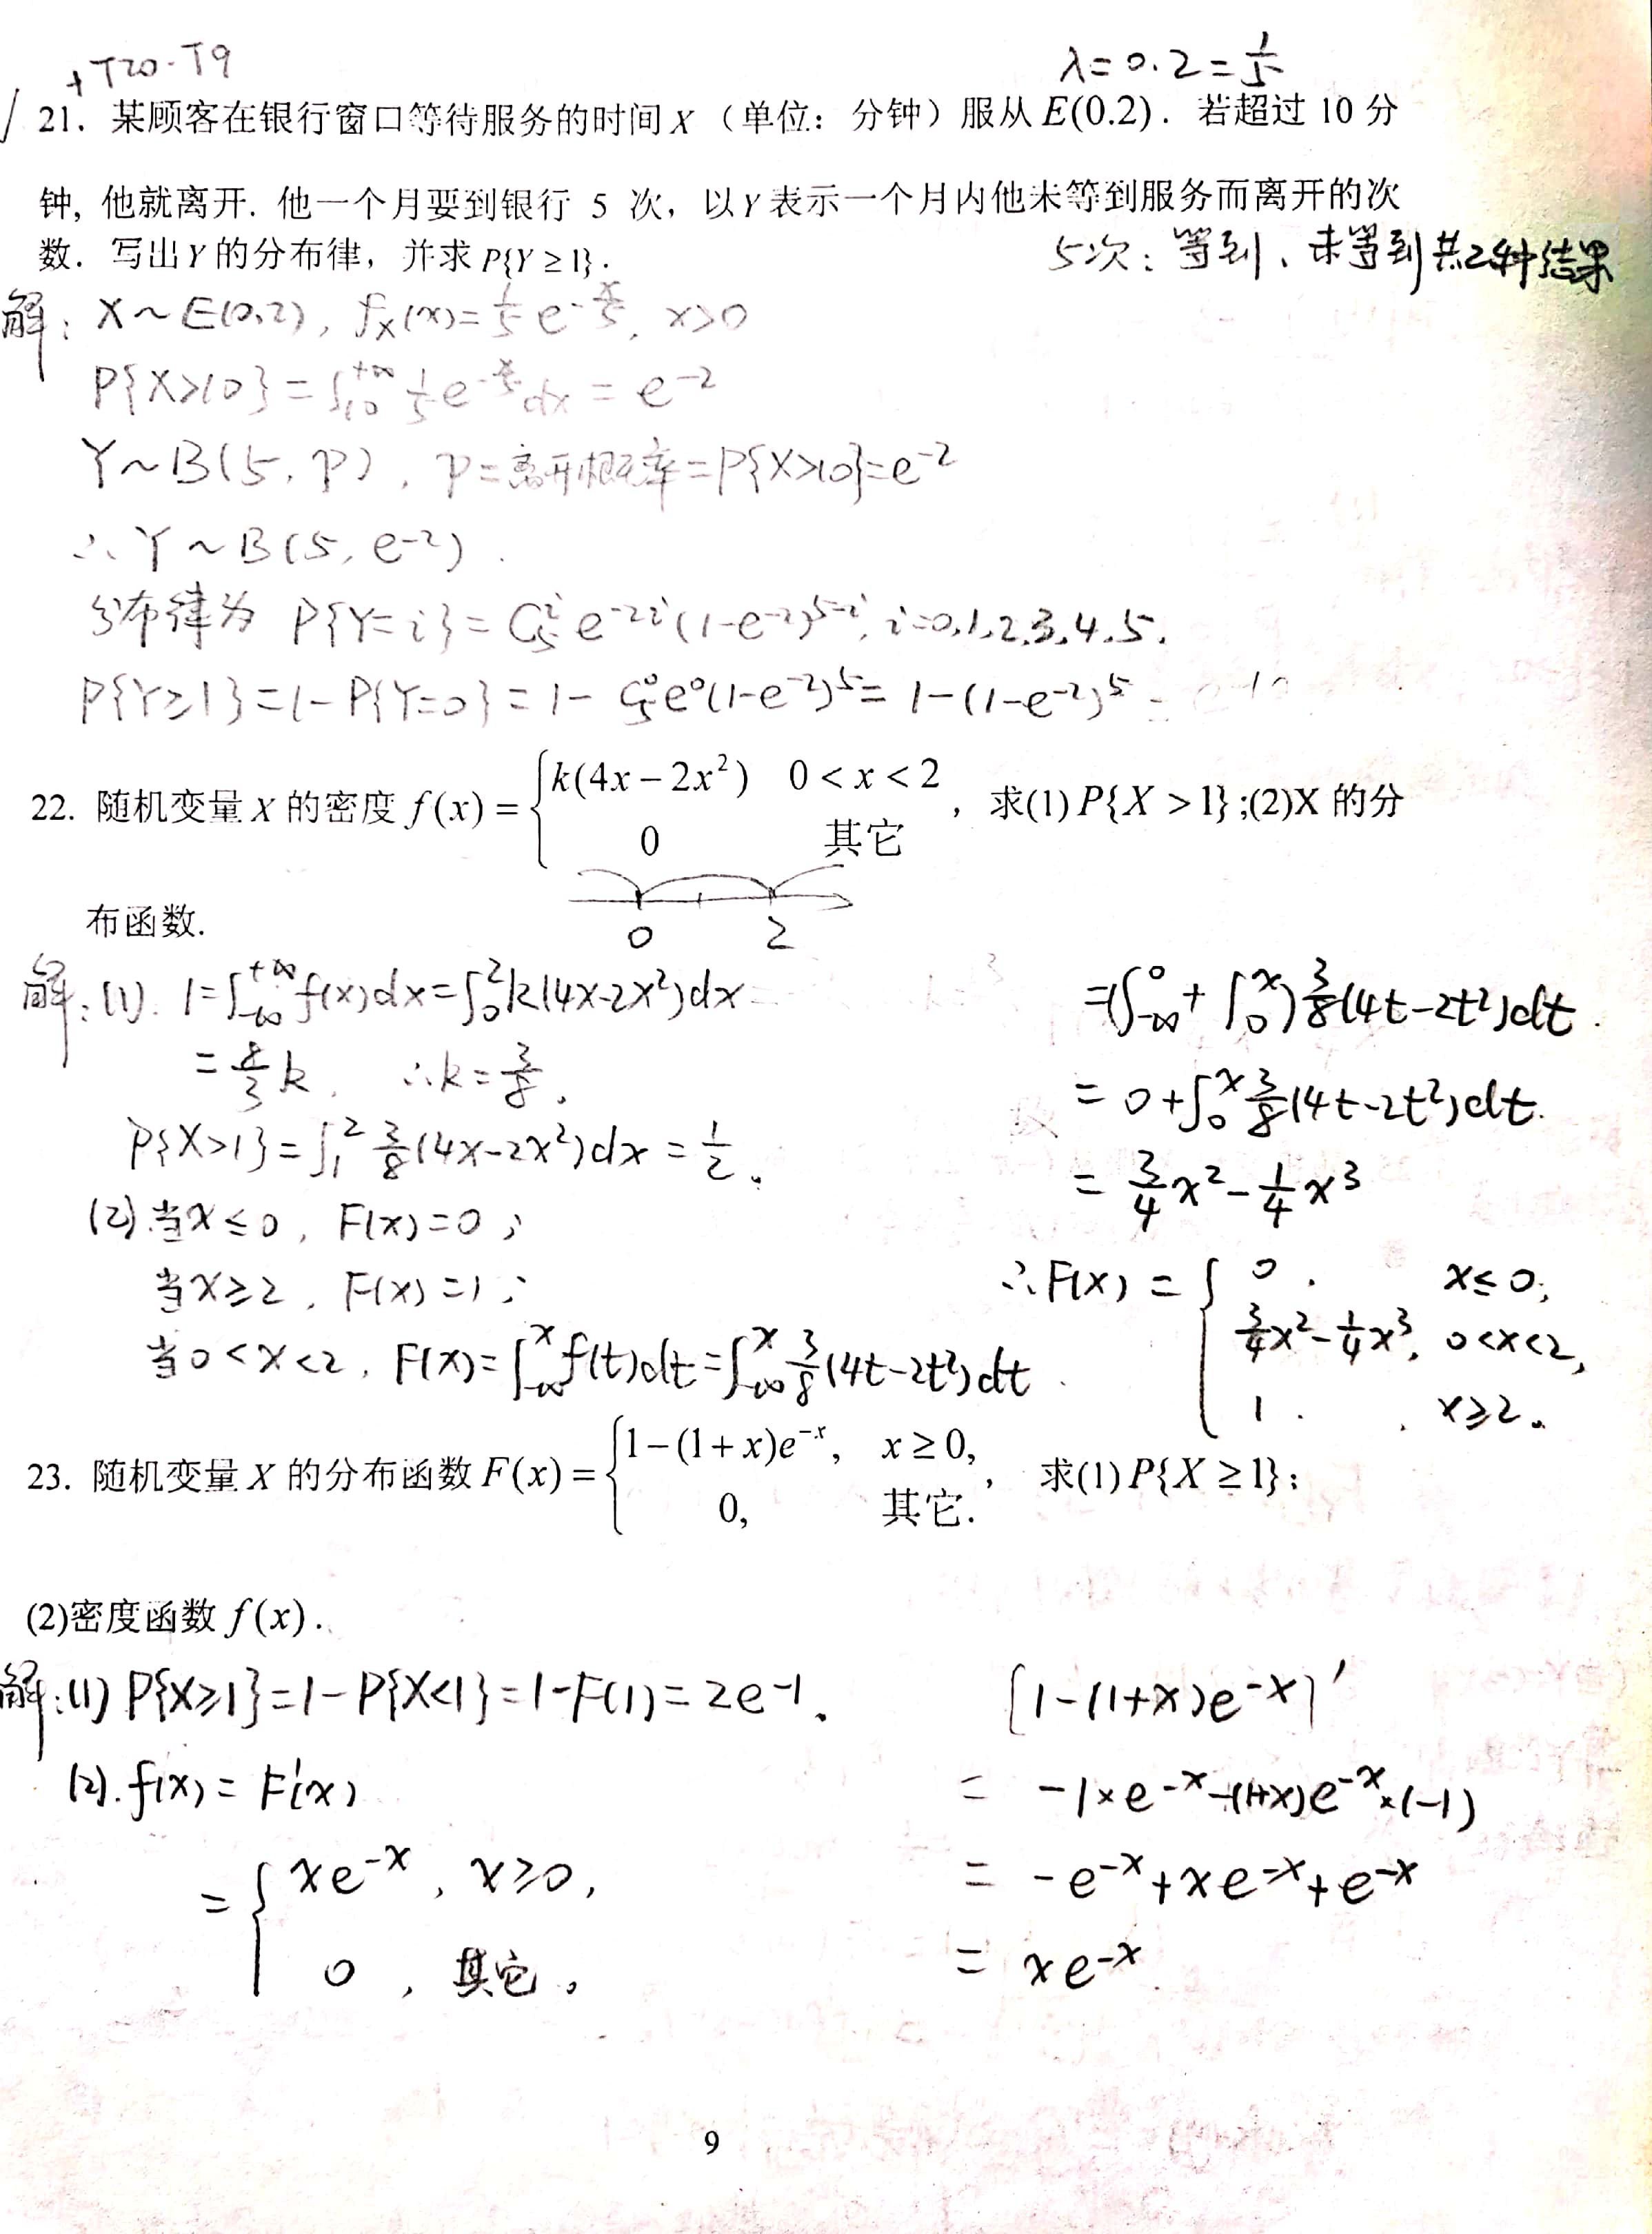 +T20-T9
λ=0.2=1/5
√ 21. 某顾客在银行窗口等待服务的时间 X （单位：分钟）服从 E(0.2). 若超过 10 分
钟, 他就离开. 他一个月要到银行 5 次，以 Y 表示一个月内他未等到服务而离开的次
数. 写出 Y 的分布律，并求 P{Y ≥ 1}.
5次：等到、未等到共2种结果
解：X～E(0.2), f_X(x)=1/5 e^{-x/5}, x>0
P{X>10}=∫_{10}^{+∞} 1/5 e^{-x/5}dx = e^{-2}
Y～B(5, p), p=离开概率=P{X>10}=e^{-2}
∴ Y～B(5, e^{-2}).
分布律为 P{Y=i}=C_5^i e^{-2i}(1-e^{-2})^{5-i}, i=0,1,2,3,4,5.
P{Y≥1}=1-P{Y=0}=1-C_5^0 e^0(1-e^{-2})^5=1-(1-e^{-2})^5
22. 随机变量 X 的密度 f(x)={ k(4x-2x²) 0<x<2
0 其它 ，求(1) P{X>1};(2)X 的分
布函数.
0 2
解：(1). 1=∫_{-∞}^{+∞}f(x)dx=∫_0^2 k(4x-2x²)dx
=8/3 k, ∴k=3/8.
P{X>1}=∫_1^2 3/8(4x-2x²)dx=1/2.
(2) 当x≤0, F(x)=0；
当x≥2, F(x)=1；
当0<x<2, F(x)=∫_{-∞}^x f(t)dt=∫_{-∞}^x 3/8(4t-2t²)dt
=(∫_{-∞}^0+∫_0^x)3/8(4t-2t²)dt.
=0+∫_0^x 3/8(4t-2t²)dt.
=3/4x²-1/4x³
∴F(x)={ 0, x≤0;
3/4x²-1/4x³, 0<x<2,
1, x≥2.
23. 随机变量 X 的分布函数 F(x)={ 1-(1+x)e^{-x}, x≥0,
0, 其它. ， 求(1) P{X≥1};
(2)密度函数 f(x).
解：(1) P{X≥1}=1-P{X<1}=1-F(1)=2e^{-1}.
(2). f(x)=F'(x)
={ xe^{-x}, x≥0,
0, 其它.
[1-(1+x)e^{-x}]'
= -1×e^{-x}-(1+x)e^{-x}×(-1)
= -e^{-x}+xe^{-x}+e^{-x}
= xe^{-x}
9